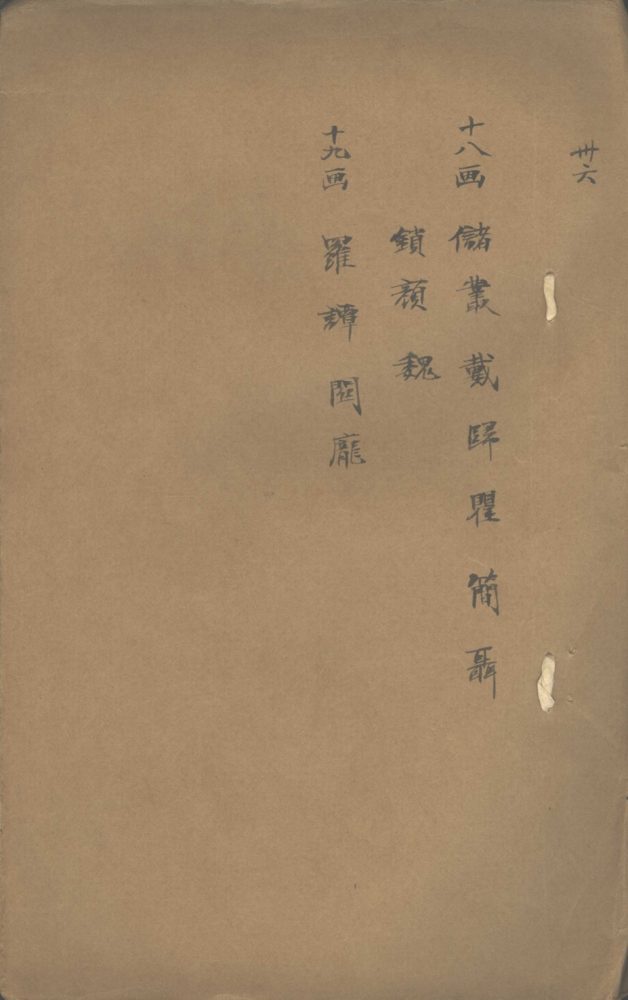 卅六
十八画 儲 叢 戴 歸 瞿 簡 聶
鎖 顏 魏
十九画 羅 譚 關 龐